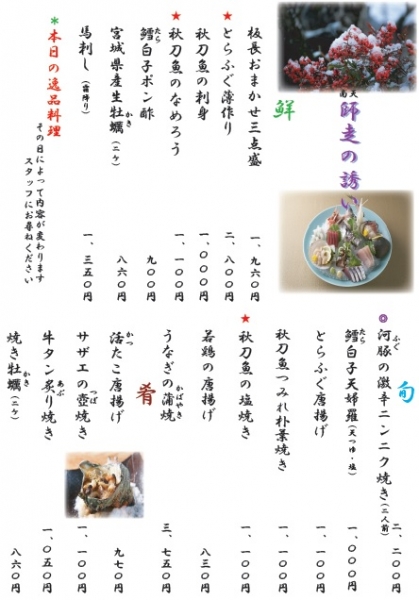 師走の誘い
鮮
板長おまかせ三点盛 一、九六〇円
★とらふぐ薄作り 二、八〇〇円
秋刀魚の刺身 一、〇〇〇円
★秋刀魚のなめろう 一、一〇〇円
鱈白子ポン酢 九〇〇円
たら
宮城県産生牡蠣(二ケ) 八六〇円
かき
馬刺し(霜降り) 一、三五〇円
*本日の逸品料理
その日によって内容が変わります
スタッフにお尋ねください
旬
◎河豚の激辛ニンニク焼き(二人前) 二、二〇〇円
ふぐ
鱈白子天婦羅(天つゆ・塩) 一、〇〇〇円
たら
とらふぐ唐揚げ 一、一〇〇円
秋刀魚つみれ朴葉焼き 一、一〇〇円
★秋刀魚の塩焼き 一、〇〇〇円
若鶏の唐揚げ 八三〇円
うなぎの蒲焼 三、七五〇円
かばやき
肴
活たこ唐揚げ 九七〇円
かつ
サザエの壺焼き 一、一〇〇円
つぼ
牛タン炙り焼き 一、〇五〇円
あぶ
焼き牡蠣(二ケ) 八六〇円
かき